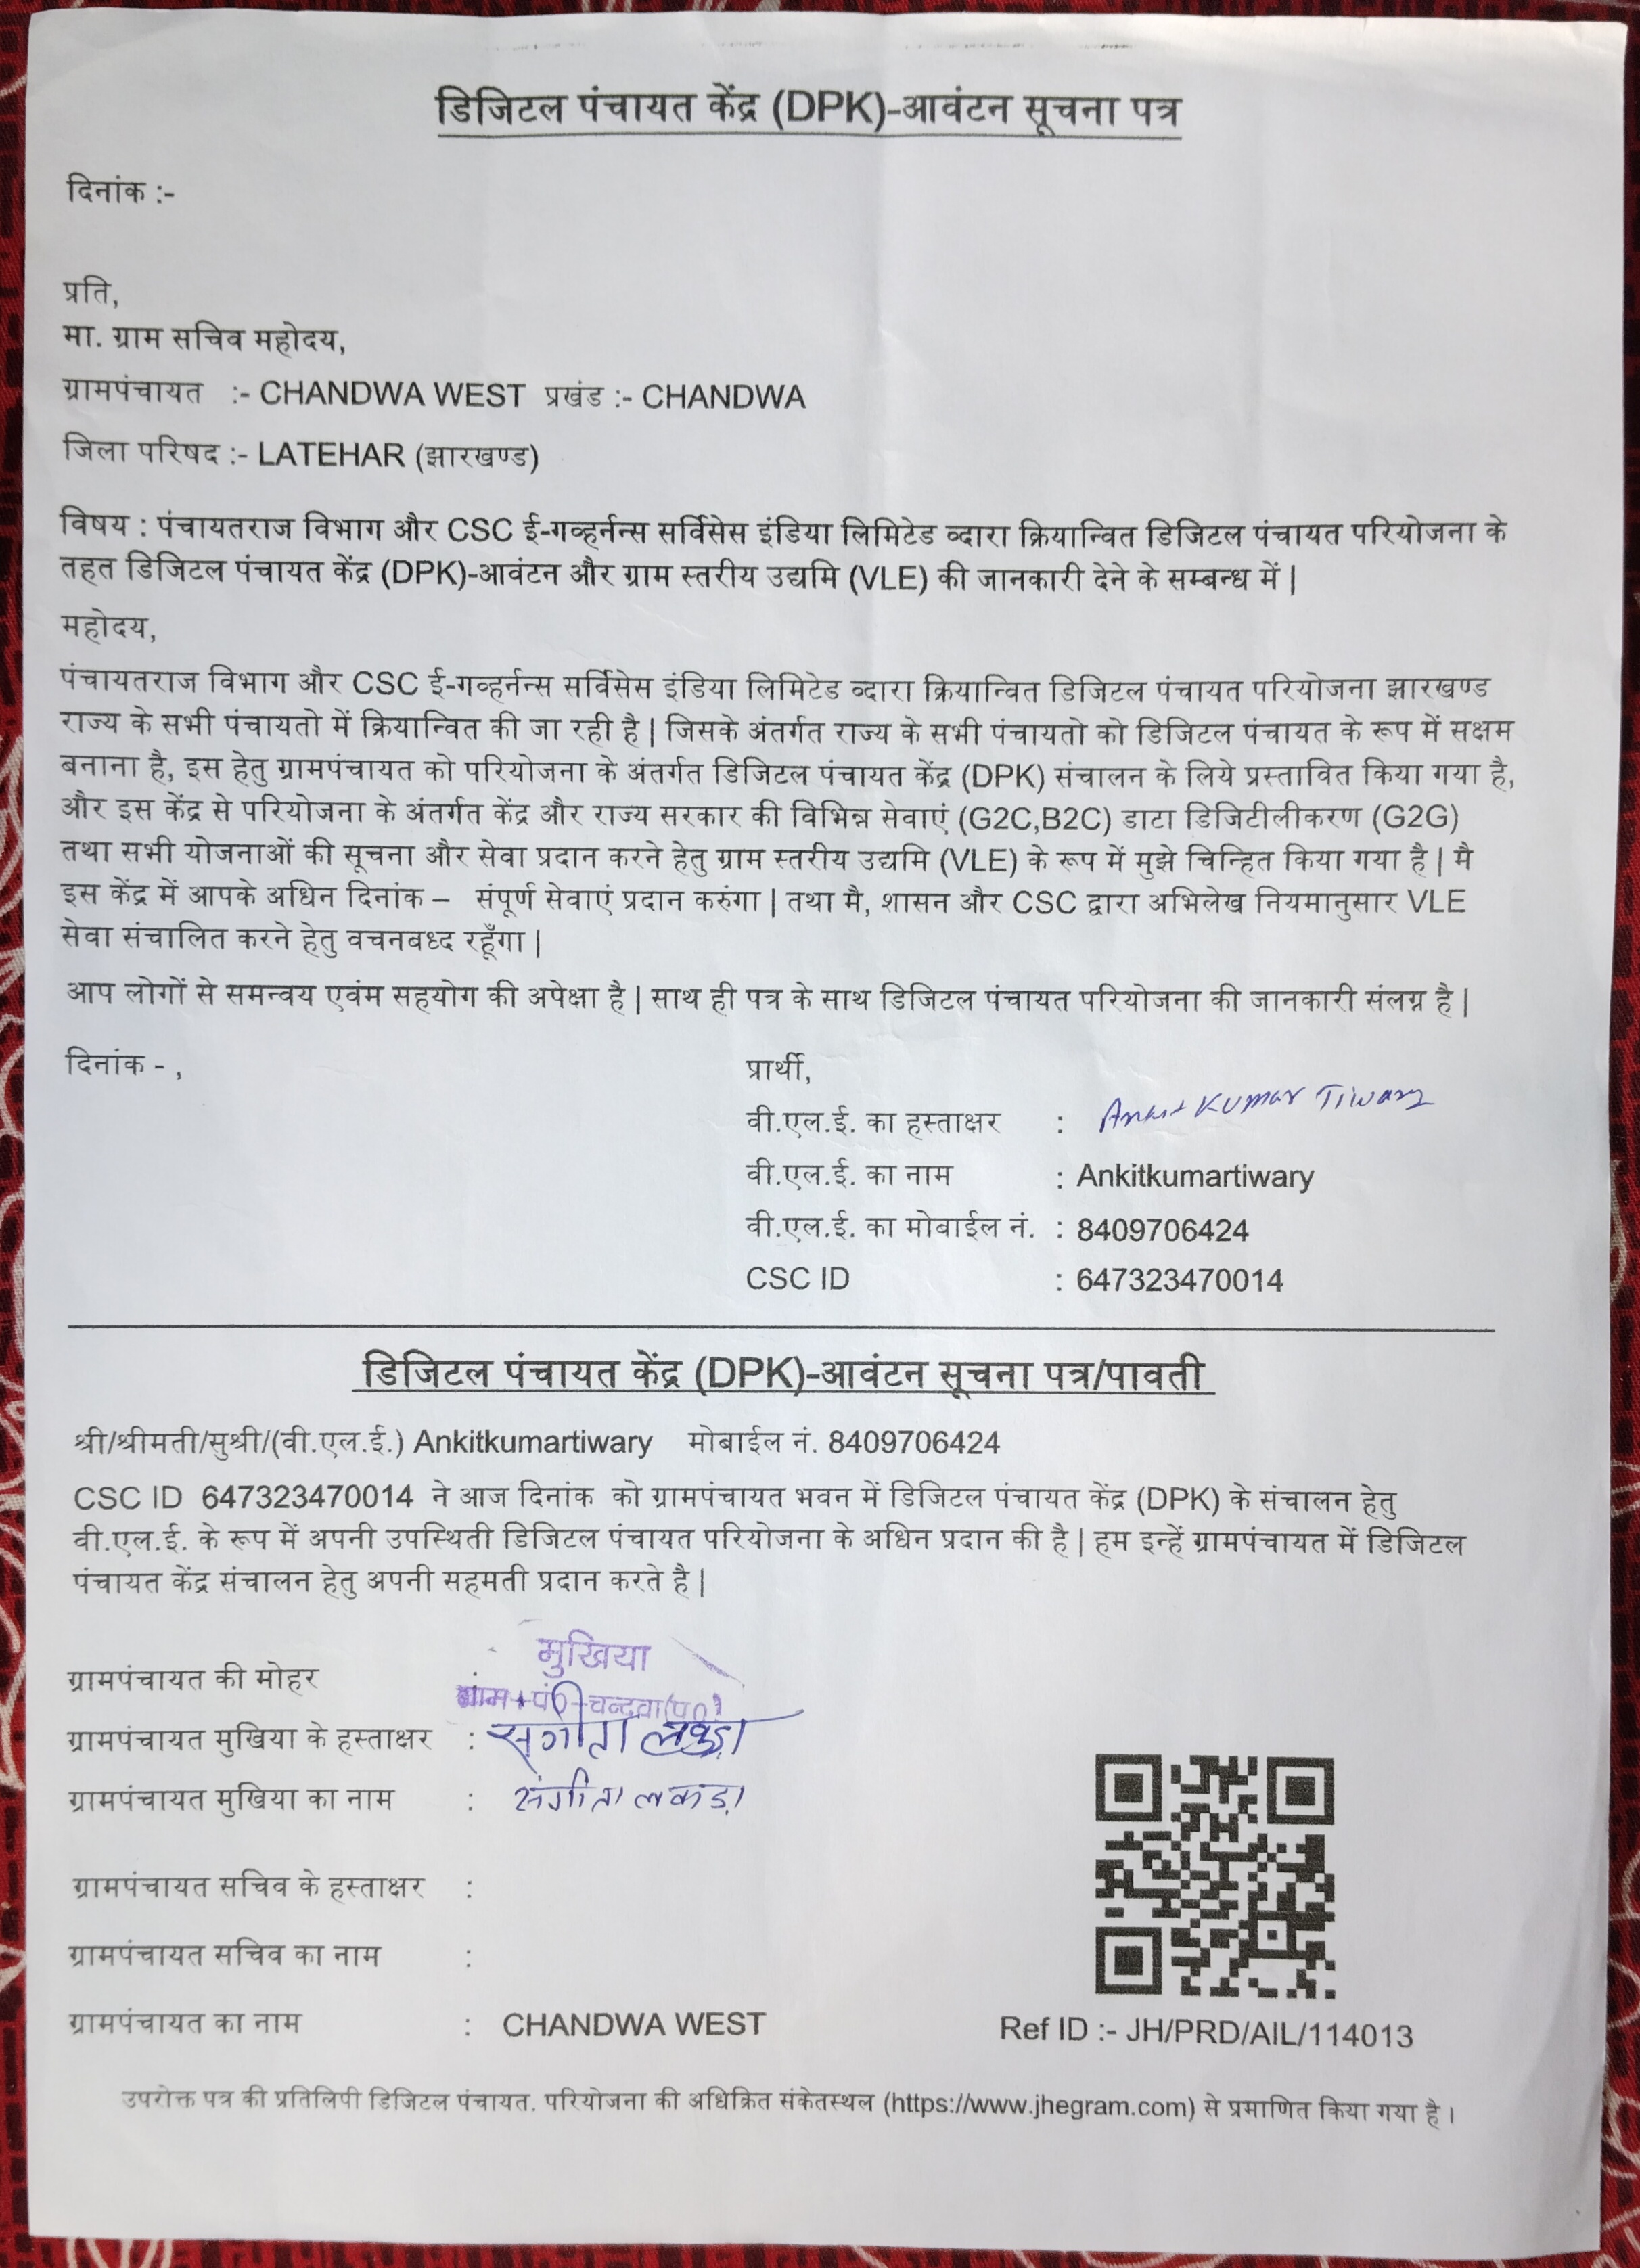 डिजिटल पंचायत केंद्र (DPK)-आवंटन सूचना पत्र
दिनांक :-
प्रति,
मा. ग्राम सचिव महोदय,
ग्रामपंचायत :- CHANDWA WEST प्रखंड :- CHANDWA
जिला परिषद :- LATEHAR (झारखण्ड)
विषय : पंचायतराज विभाग और CSC ई-गव्हर्नन्स सर्विसेस इंडिया लिमिटेड व्दारा क्रियान्वित डिजिटल पंचायत परियोजना के
तहत डिजिटल पंचायत केंद्र (DPK)-आवंटन और ग्राम स्तरीय उद्यमि (VLE) की जानकारी देने के सम्बन्ध में |
महोदय,
पंचायतराज विभाग और CSC ई-गव्हर्नन्स सर्विसेस इंडिया लिमिटेड व्दारा क्रियान्वित डिजिटल पंचायत परियोजना झारखण्ड
राज्य के सभी पंचायतो में क्रियान्वित की जा रही है | जिसके अंतर्गत राज्य के सभी पंचायतो को डिजिटल पंचायत के रूप में सक्षम
बनाना है, इस हेतु ग्रामपंचायत को परियोजना के अंतर्गत डिजिटल पंचायत केंद्र (DPK) संचालन के लिये प्रस्तावित किया गया है,
और इस केंद्र से परियोजना के अंतर्गत केंद्र और राज्य सरकार की विभिन्न सेवाएं (G2C,B2C) डाटा डिजिटीलीकरण (G2G)
तथा सभी योजनाओं की सूचना और सेवा प्रदान करने हेतु ग्राम स्तरीय उद्यमि (VLE) के रूप में मुझे चिन्हित किया गया है | मै
इस केंद्र में आपके अधिन दिनांक – संपूर्ण सेवाएं प्रदान करुंगा | तथा मै, शासन और CSC द्वारा अभिलेख नियमानुसार VLE
सेवा संचालित करने हेतु वचनबध्द रहूँगा |
आप लोगों से समन्वय एवंम सहयोग की अपेक्षा है | साथ ही पत्र के साथ डिजिटल पंचायत परियोजना की जानकारी संलग्न है |
दिनांक - ,
प्रार्थी,
वी.एल.ई. का हस्ताक्षर : Ankit Kumar Tiwary
वी.एल.ई. का नाम : Ankitkumartiwary
वी.एल.ई. का मोबाईल नं. : 8409706424
CSC ID : 647323470014
डिजिटल पंचायत केंद्र (DPK)-आवंटन सूचना पत्र/पावती
श्री/श्रीमती/सुश्री/(वी.एल.ई.) Ankitkumartiwary मोबाईल नं. 8409706424
CSC ID 647323470014 ने आज दिनांक को ग्रामपंचायत भवन में डिजिटल पंचायत केंद्र (DPK) के संचालन हेतु
वी.एल.ई. के रूप में अपनी उपस्थिती डिजिटल पंचायत परियोजना के अधिन प्रदान की है | हम इन्हें ग्रामपंचायत में डिजिटल
पंचायत केंद्र संचालन हेतु अपनी सहमती प्रदान करते है |
मुखिया
ग्रामपंचायत की मोहर :
ग्राम पं०-चन्दवा(प०)
ग्रामपंचायत मुखिया के हस्ताक्षर : संगीता लकड़ा
ग्रामपंचायत मुखिया का नाम : संगीता लकड़ा
ग्रामपंचायत सचिव के हस्ताक्षर :
ग्रामपंचायत सचिव का नाम :
ग्रामपंचायत का नाम : CHANDWA WEST
Ref ID :- JH/PRD/AIL/114013
उपरोक्त पत्र की प्रतिलिपी डिजिटल पंचायत. परियोजना की अधिक्रित संकेतस्थल (https://www.jhegram.com) से प्रमाणित किया गया है ।